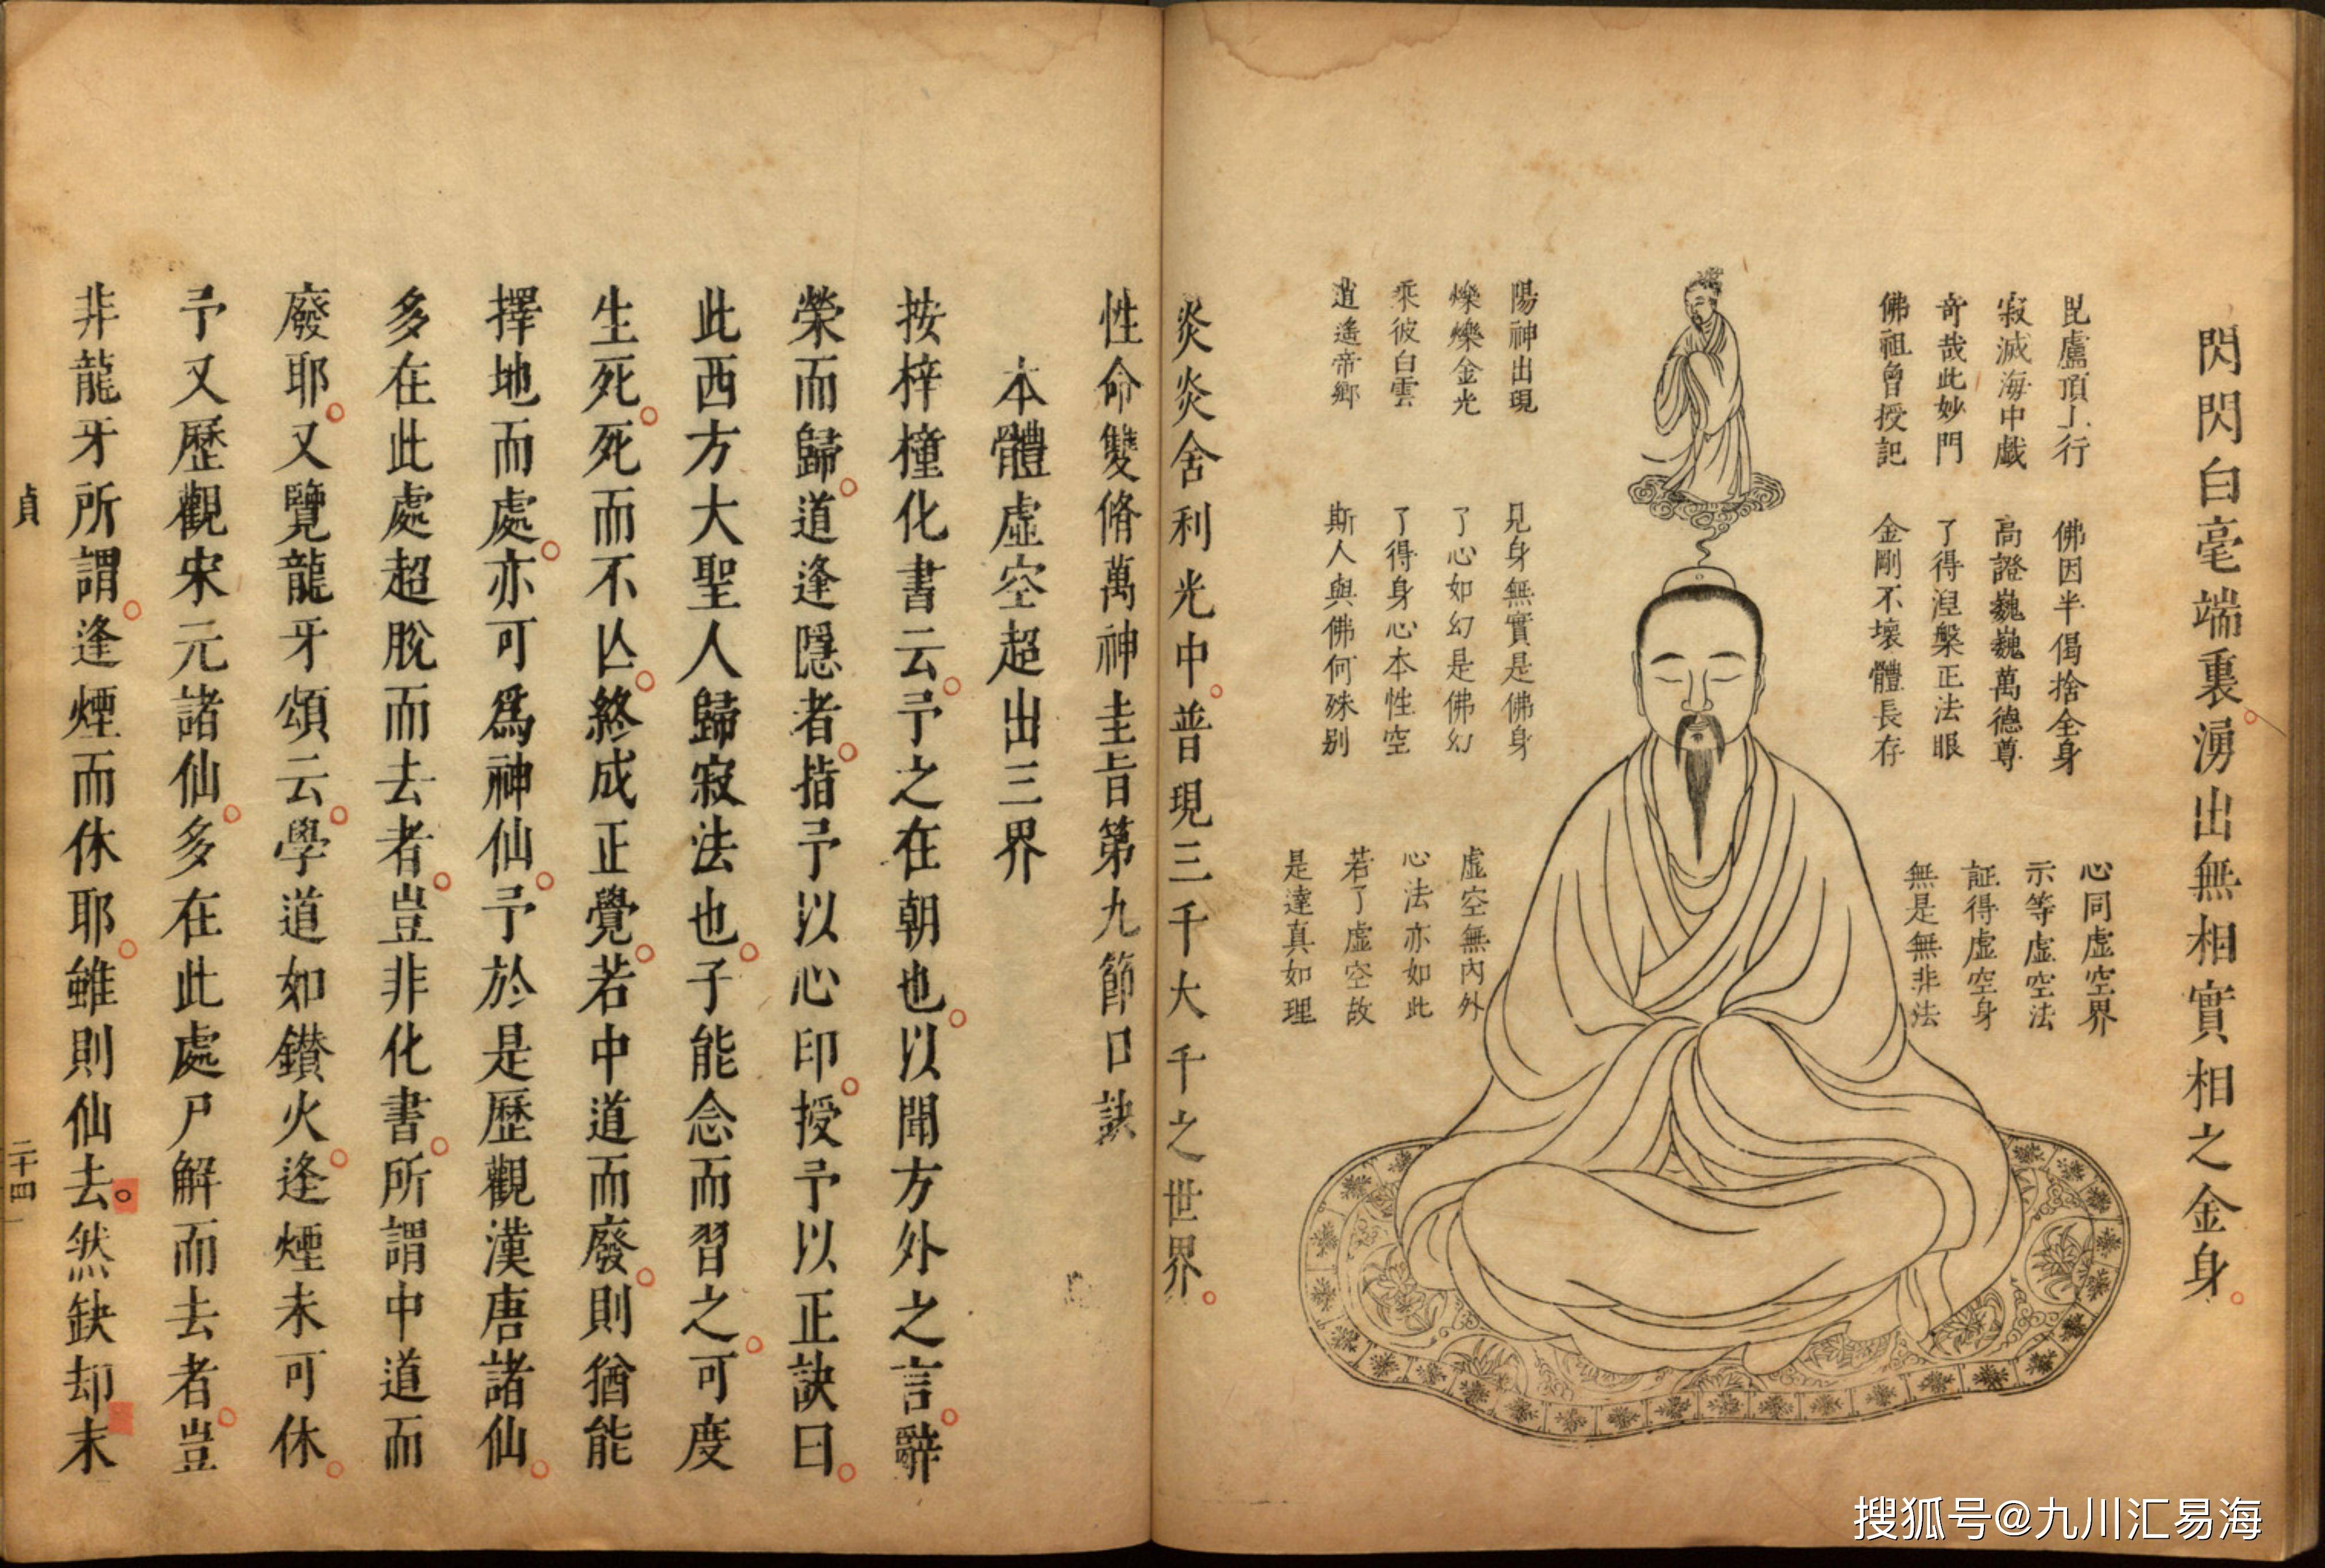 閃閃白毫端裏湧出無相實相之金身
毘盧頂上行
寂滅海中戲
奇哉此妙門
佛祖曾授記
佛因半偈捨全身
高證巍巍萬德尊
了得湼槃正法眼
金剛不壞體長存
心同虛空界
示等虛空法
証得虛空身
無是無非法
陽神出現
爍爍金光
乘彼白雲
逍遙帝鄉
見身無實是佛身
了心如幻是佛幻
了得身心本性空
斯人與佛何殊别
虛空無內外
心法亦如此
若了虛空故
是達真如理
炎炎舍利光中普現三千大千之世界
性命雙脩萬神圭旨第九節口訣
本體虛空超出三界
按梓橦化書云予之在朝也以聞方外之言辭
榮而歸道逢隱者指予以心印授予以正訣曰
此西方大聖人歸寂法也子能念而習之可度
生死死而不亾終成正覺若中道而廢則猶能
擇地而處亦可爲神仙予於是歷觀漢唐諸仙
多在此處超脫而去者豈非化書所謂中道而
廢耶又覽龍牙頌云學道如鑚火逢煙未可休
予又歷觀宋元諸仙多在此處尸解而去者豈
非龍牙所謂逢煙而休耶雖則仙去然缺却末
貞
二十四
搜狐号@九川汇易海